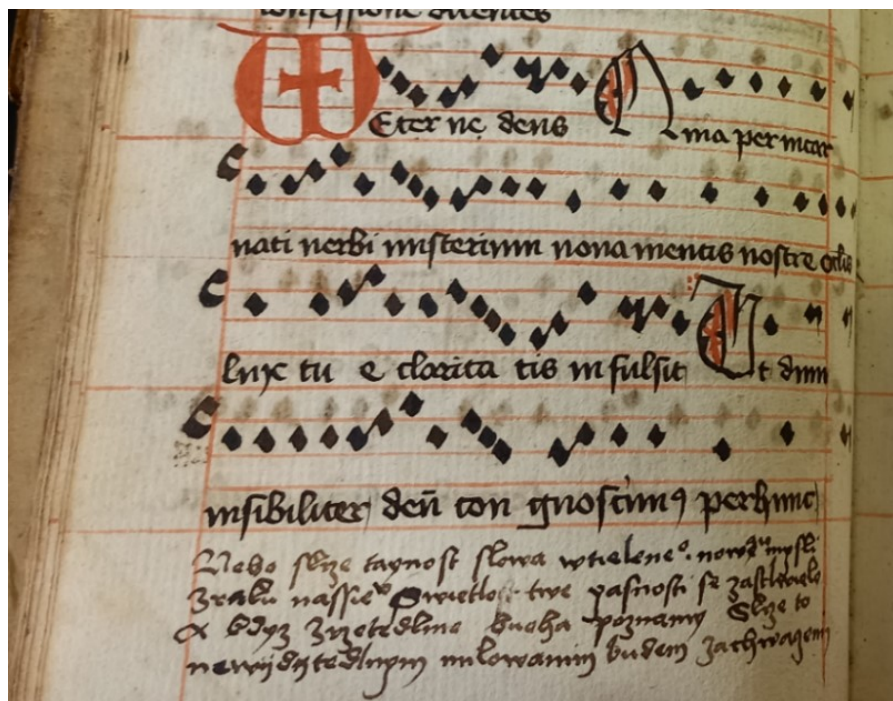 confessione dicentes
Eterne deus Quia per incar
nati uerbi misterium noua mentis nostre oclis
lux tu e clarita tis infulsit Et dum
uisibiliter deū con gnoscimꝰ per hunc
Nebo skrze taynost slowa wtielene°. nowa mysli
zraku nassie° Swietlost twe yasnosti se zastkwiela
A kdyz zrzetedlnie boha poznamy Skrze to
newidytedlnym milowanim budem zachwaceni